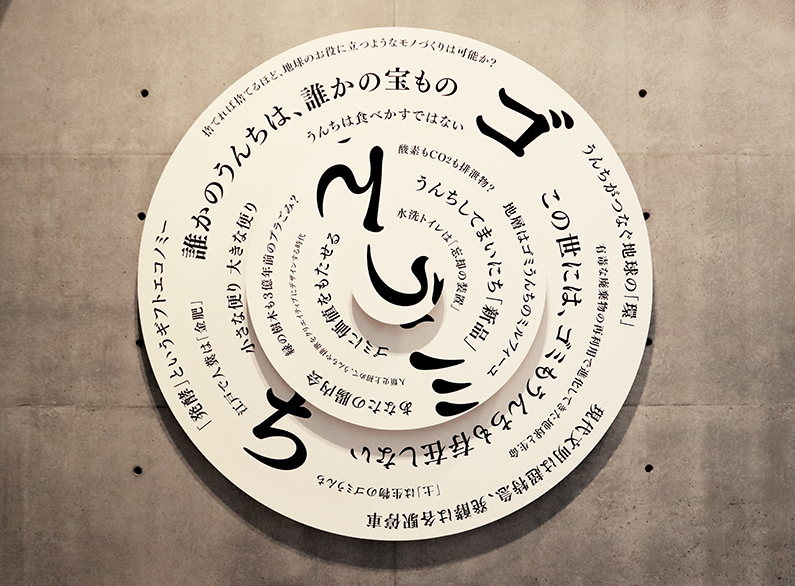 捨てれば捨てるほど、地球のお役に立つようなモノづくりは可能か?
誰かのうんちは、誰かの宝もの
うんちは食べかすではない
ゴミ
うんち
酸素もCO2も排泄物?
うんちしてまいにち「新品」
水洗トイレは「忘却の装置」
地層はゴミうんちのミルフィーユ
うんちがつなぐ地球の「環」
この世には、ゴミもうんちも存在しない
有毒な廃棄物の再利用で進化してきた地球と生命
現代文明は超特急、発酵は各駅停車
「土」は生物のゴミうんち
「発酵」というギフトエコノミー
江戸で人糞は「金肥」
小さな便り 大きな便り
緑の樹木も3億年前のプラごみ?
ゴミに価値をもたせる
人類史上初めて、うんちや排泄をクリエイティブにデザインする時代
あなたの腸内会